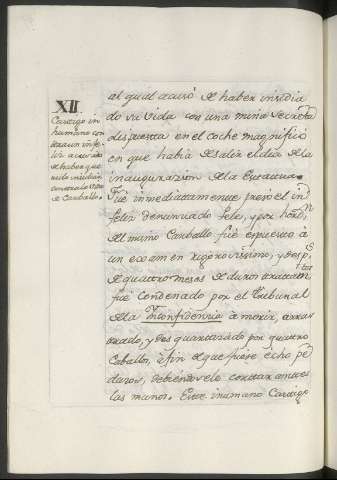 XII
Castigo in
humano con
tra un infe
liz acusado
de haber que
rido insidiar
contra la vida
de Carballo.
al qual acusó de haber insidia
do su vida con una mina secreta
dispuesta en el coche magnifico
en que habia de salir el dia de la
inauguracion de la Estatua.
Fue inmediatamente preso el in
feliz denunciado Pele, y por hordn
del mismo Carballo fué espuesto à
un examen rigorosissimo, y desps
de quatro meses de duros tratam.tos
fué condenado por el Tribunal
de la Inconfidencia à morir, arras
trado, y desquartizado por quatro
Caballos, à fin de que fuese echo pe
dazos, debiendosele cortar antes
las manos. Este inhumano Castigo